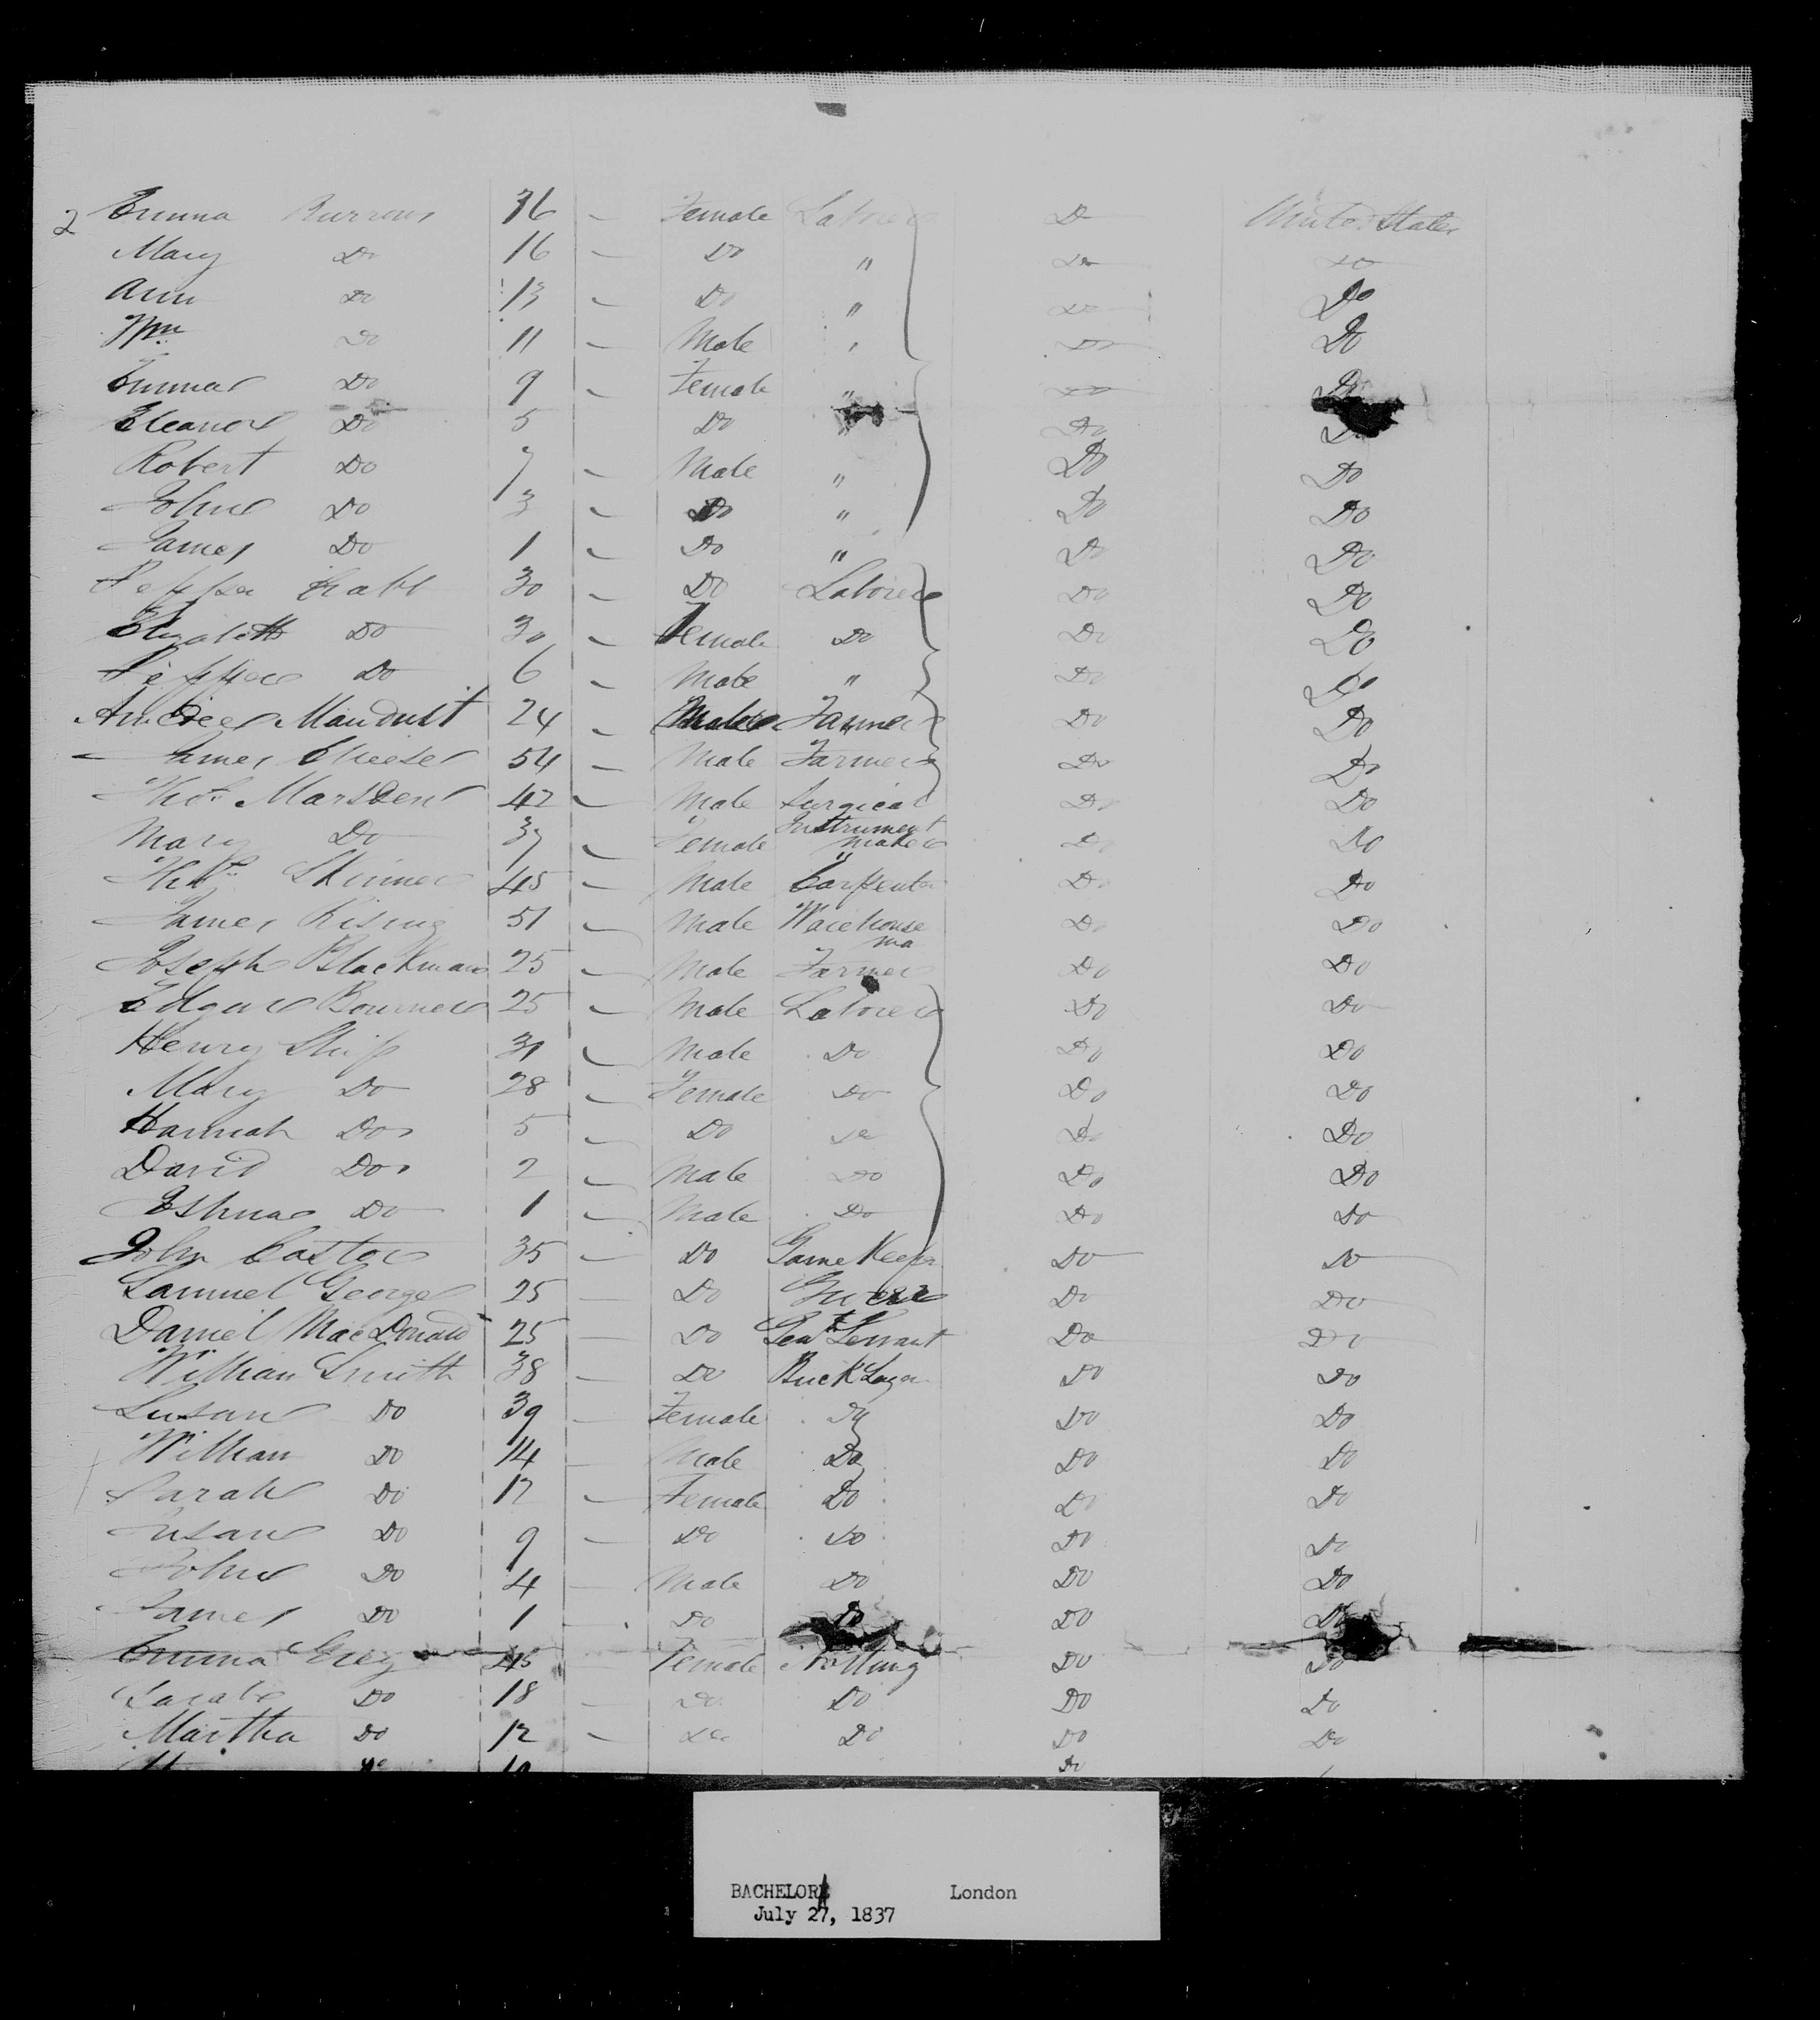 2 Emma Burrows 36 — Female Laborer Do United States
Mary Do 16 — Do " Do Do
Ann Do 13 — Do " Do Do
Wm Do 11 — Male " Do Do
Emma Do 9 — Female " Do Do
Eleanor Do 5 Do " Do Do
Robert Do 7 — Male " Do Do
John Do 3 — Do " Do Do
James Do 1 — Do " Do Do
30 — Do Laborer Do Do
Elizabeth Do 30 — Female Do Do Do
Do 6 — Male " Do Do
24 — Male Farmer Do Do
James Cheeser 54 — Male Farmer Do Do
Thos Marsden 42 — Male Surgical Do Do
Instrument
Mary Do 37 — Female maker Do Do
Skinner 45 — Male " Carpenter Do Do
James Rising 51 — Male Warehouse Do Do
ma
Joseph Blackman 25 — Male Farmer Do Do
Edgar Bourner 25 — Male Laborer Do Do
Henry Ship 31 — Male Do Do Do
Mary Do 28 — Female Do Do Do
Hannah Do 5 — Do Do Do Do
David Do 2 — Male Do Do Do
Do 1 — Male Do Do Do
John Castor 35 — Do Game Keeper Do Do
Samuel George 25 — Do Do Do
Daniel MacDonald 25 — Do Servant Do Do
William Smith 38 — Do Do Do
Susan Do 39 — Female Do Do Do
William Do 14 — Male Do Do Do
Sarah Do 12 — Female Do Do Do
Susan Do 9 — Do Do Do Do
John Do 4 — Male Do Do Do
James Do 1 — Do Do Do Do
Emma Grey 45 — Female Nothing Do Do
Sarah Do 18 — Do Do Do Do
Martha Do 12 — Do Do Do Do
Do 10 Do
BACHELOR London
July 27, 1837